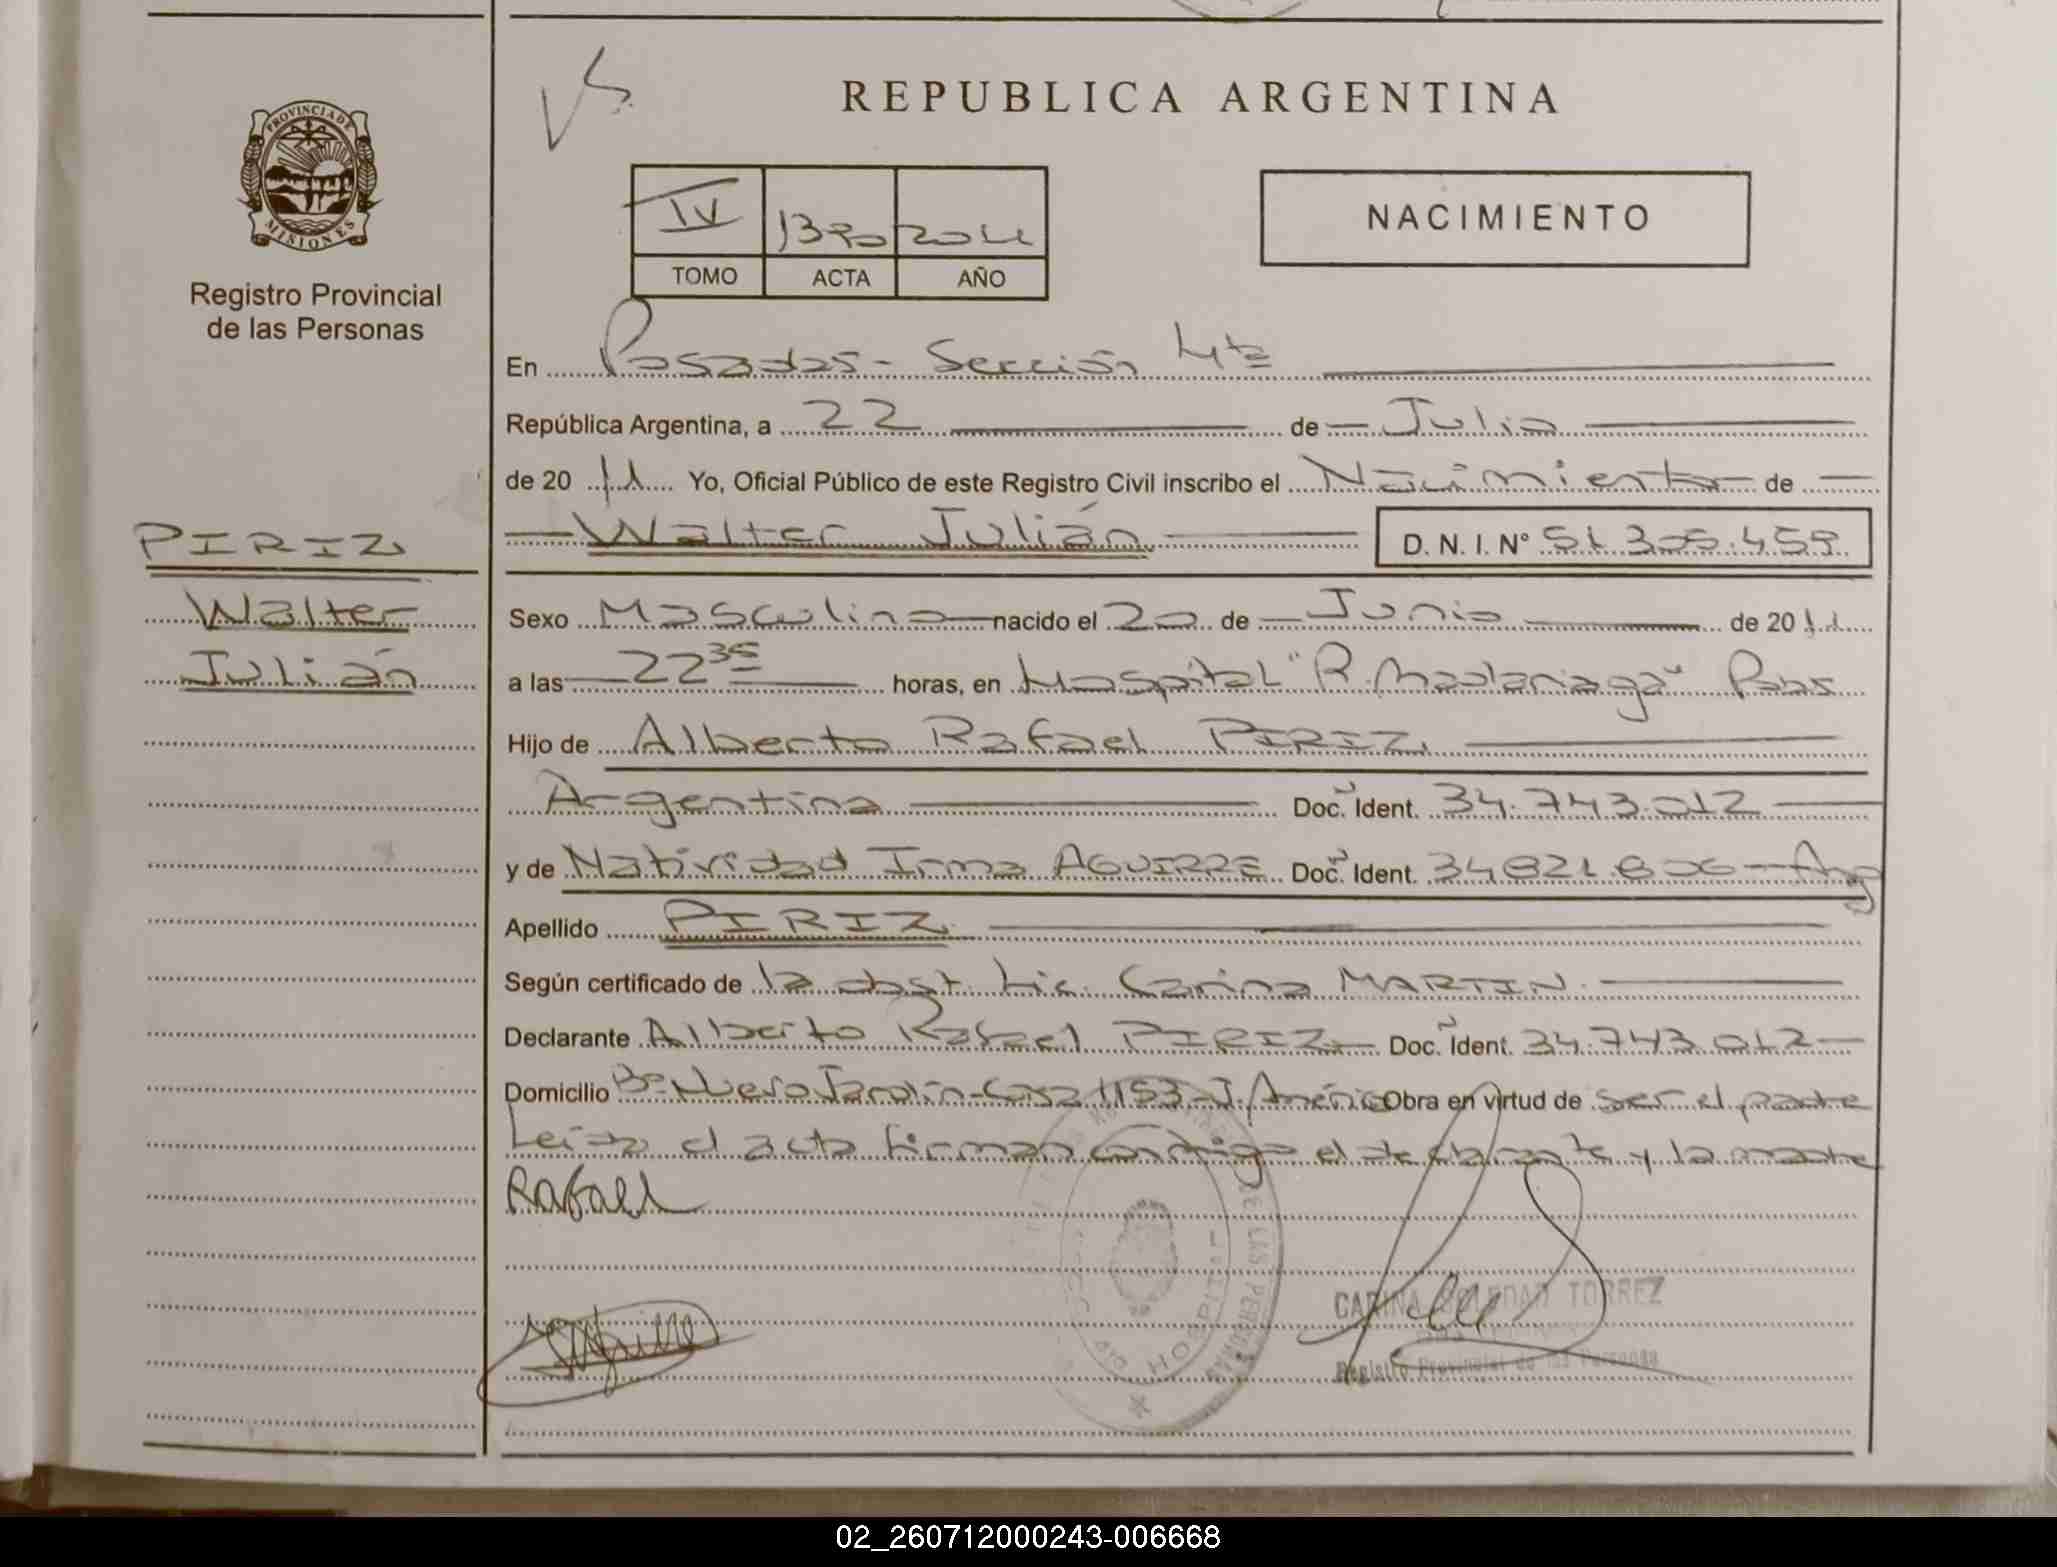 REPUBLICA ARGENTINA
PROVINCIA DE
MISIONES
Registro Provincial
de las Personas
IV 1390 2011
TOMO ACTA AÑO
NACIMIENTO
En Posadas - Sección 4ta
República Argentina, a 22 de Julio
de 20 11 Yo, Oficial Público de este Registro Civil inscribo el Nacimiento de
Walter Julián D. N. I. N° 51.305.459
PIRIZ
Walter
Julián
Sexo Masculino nacido el 20 de Junio de 20 11
a las 22 35 horas, en Hospital "R. Madariaga" Pdas
Hijo de Alberto Rafael PIRIZ
Argentina Doc. Ident. 34.743.012
y de Natividad Irma AGUIRRE Doc. Ident. 34821.806 - Arg
Apellido PIRIZ
Según certificado de la obst. Lic. Carina MARTIN
Declarante Alberto Rafael PIRIZ Doc. Ident. 34.743.012
Domicilio B° Nuevo Jardín - Casa 1153 - J. América Obra en virtud de ser el padre
Leída el acta firman conmigo el declarante y la madre
Rafael
HOSPITAL
DE LAS PERSONAS
CARINA SOLEDAD TORREZ
Registro Provincial de las Personas
02_260712000243-006668